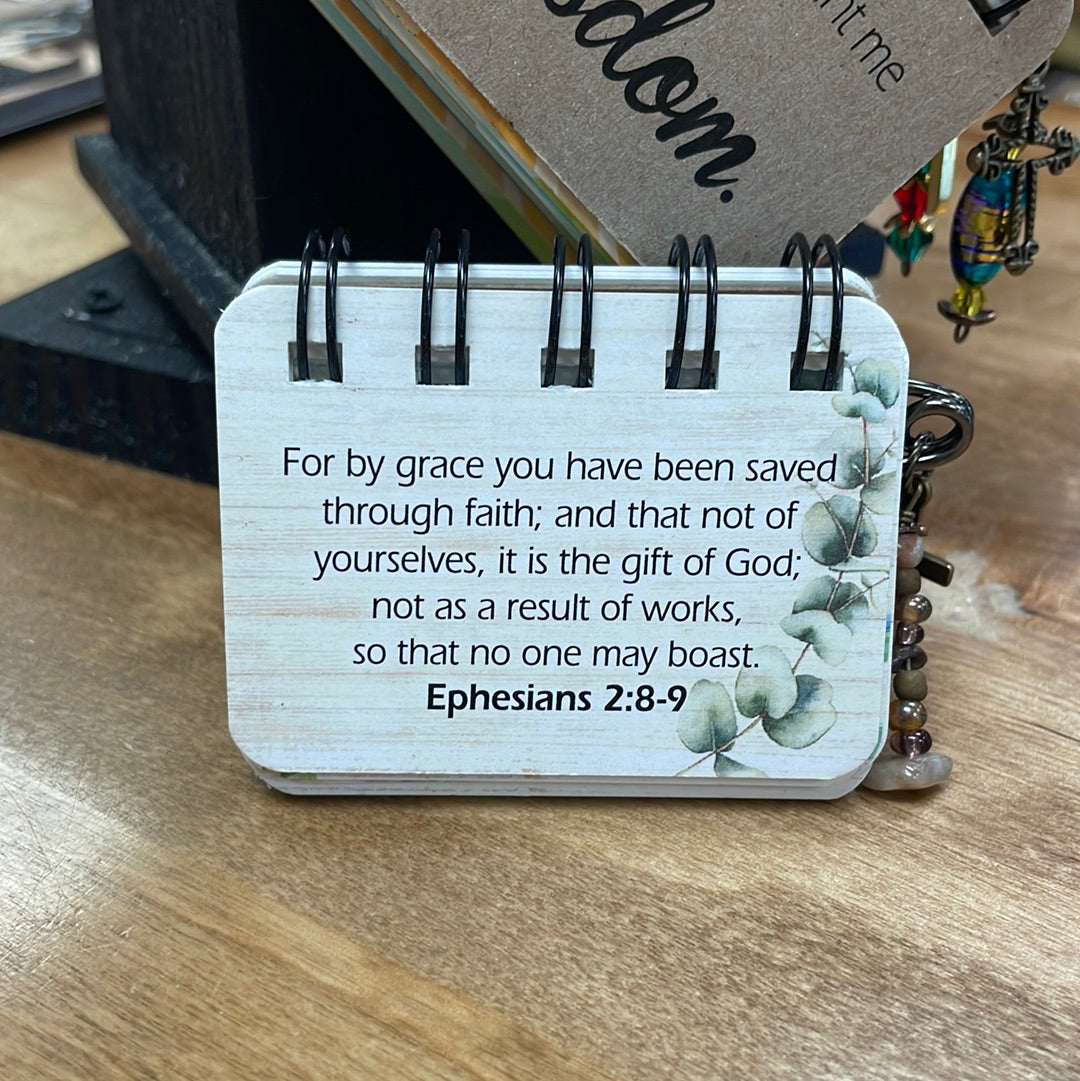 nt me
sdom.
For by grace you have been saved
through faith; and that not of
yourselves, it is the gift of God;
not as a result of works,
so that no one may boast.
Ephesians 2:8-9